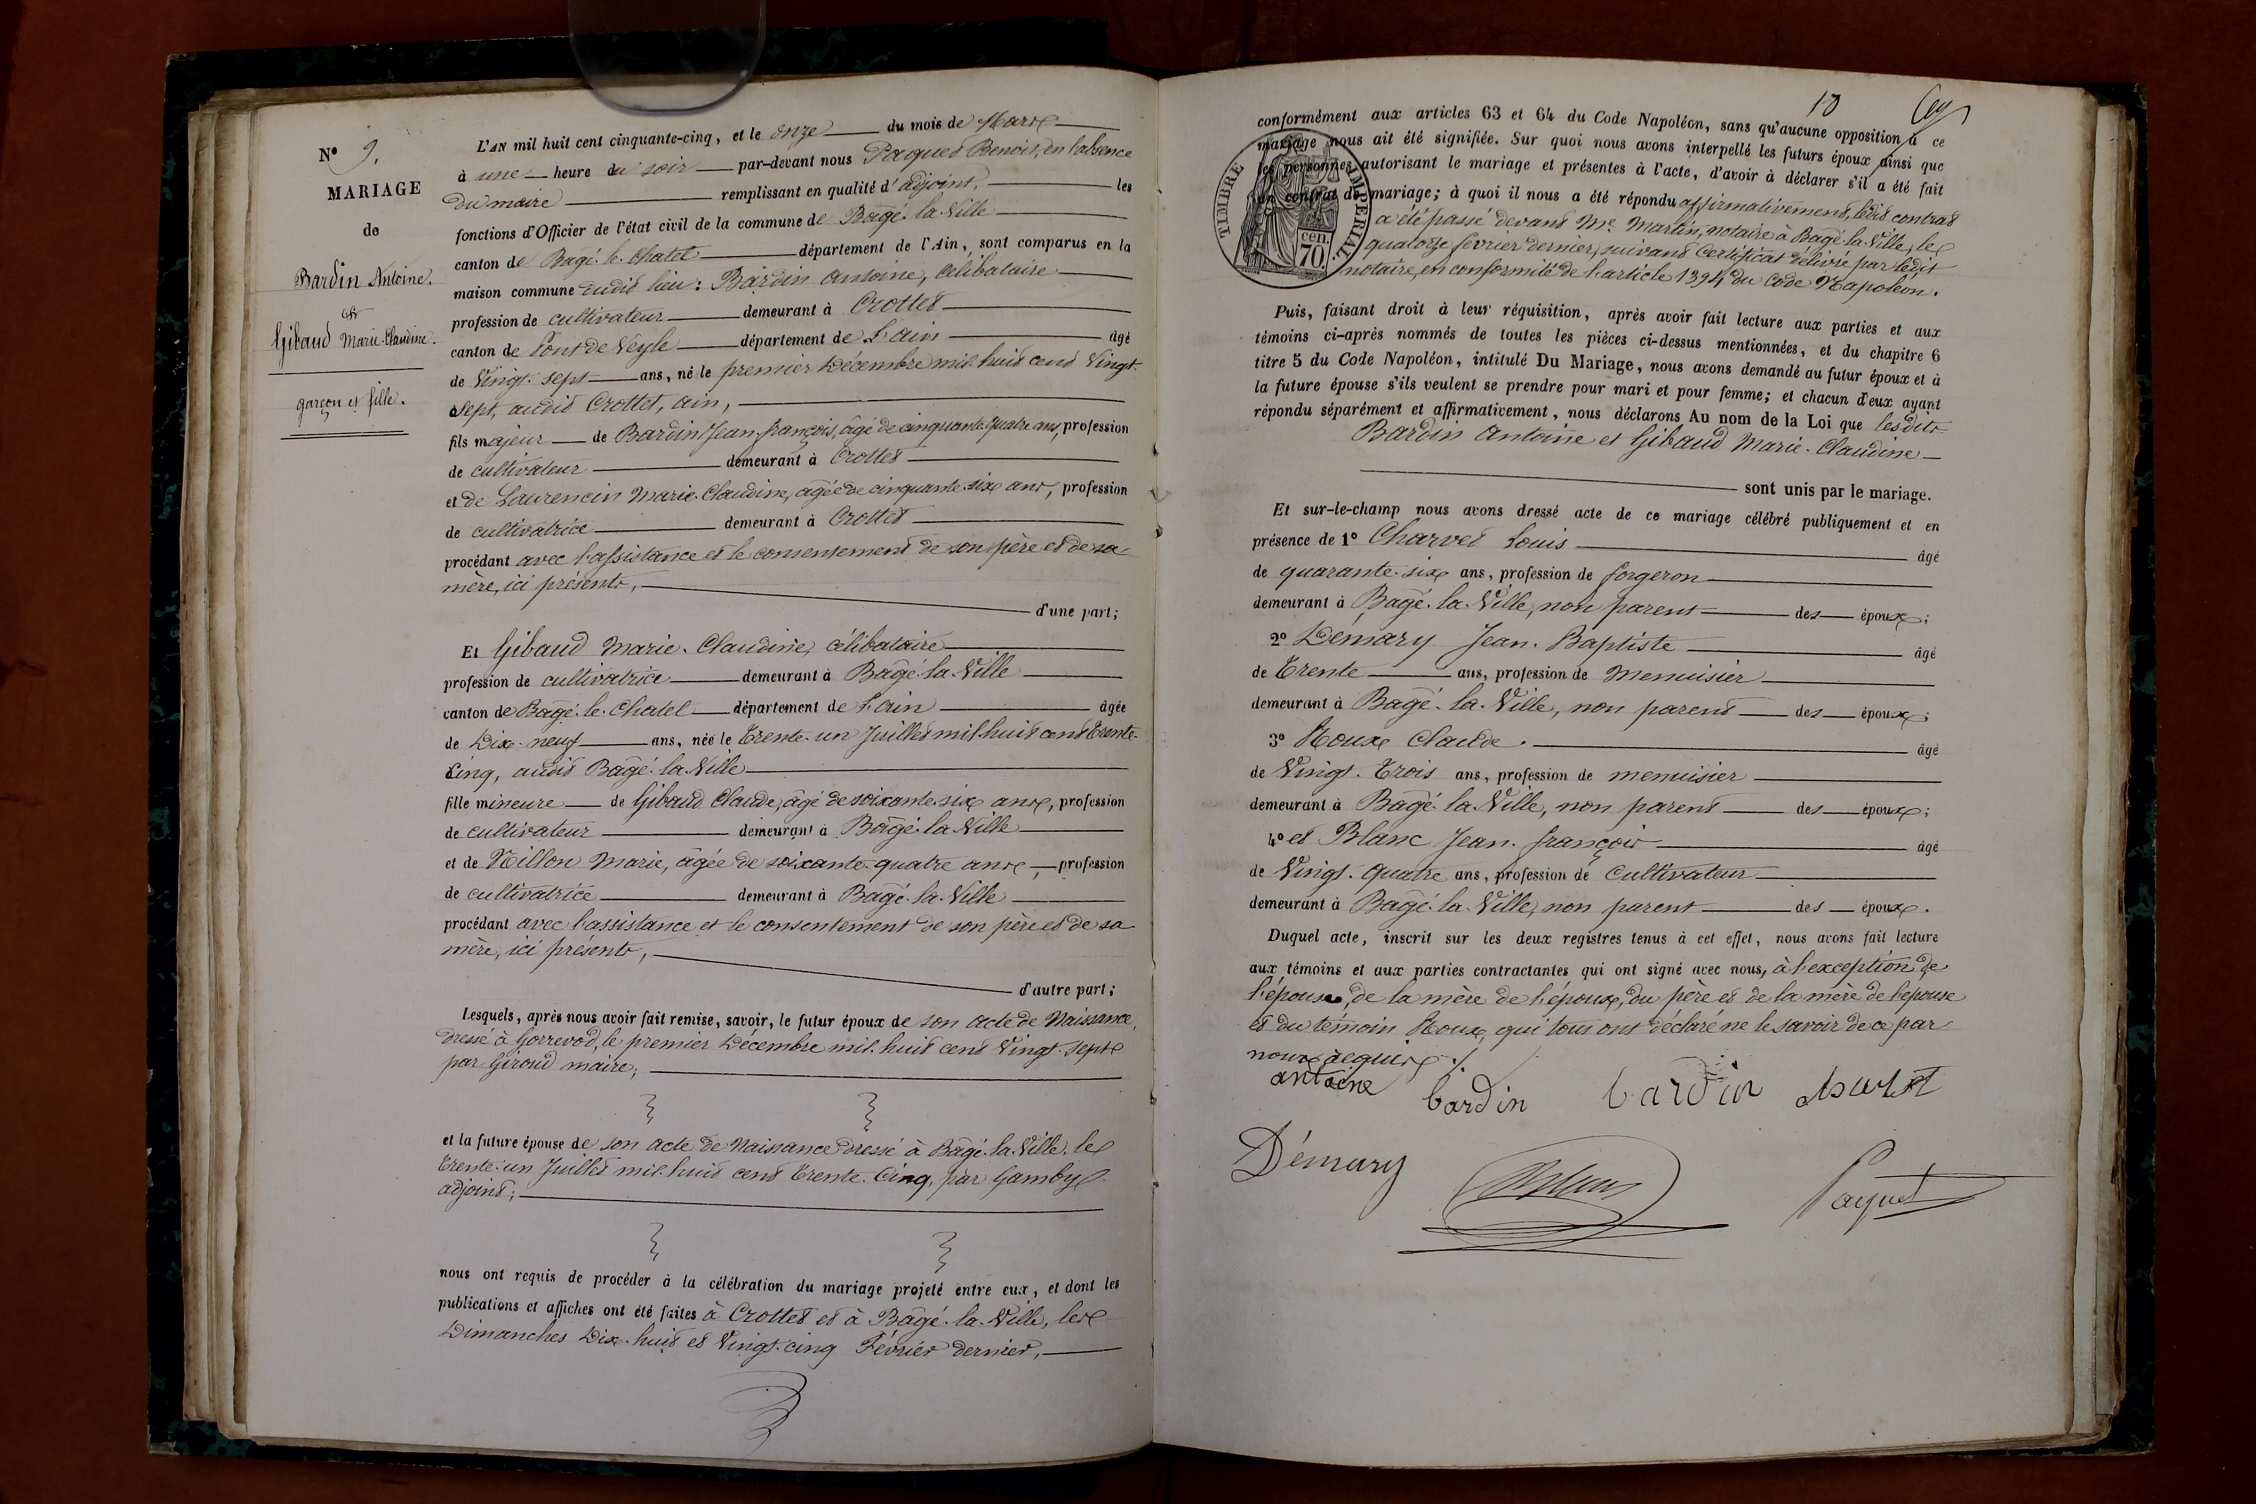 N° 9.
MARIAGE
de
Bardin Antoine.
et
Gibaud Marie-Claudine.
garçon et fille.
L'AN mil huit cent cinquante-cinq, et le onze du mois de Mars
à une heure du soir par-devant nous Paquet Benoit, en l'absence
du maire remplissant en qualité d'adjoint, les
fonctions d'Officier de l'état civil de la commune de Bagé-la-Ville
canton de Bagé-le-Chatel département de l'Ain, sont comparus en la
maison commune dudit lieu: Bardin Antoine, célibataire
profession de cultivateur demeurant à Crottet
canton de Pont de Veyle département de l'ain âgé
de Vingt-sept ans, né le premier Décembre mil-huit cent Vingt-
sept, audit Crottet, ain,
fils majeur de Bardin Jean-françois, âgé de cinquante quatre ans, profession
de cultivateur demeurant à Crottet
et de Laurencin Marie-Claudine, âgée de cinquante-six ans, profession
de cultivatrice demeurant à Crottet
procédant avec l'assistance et le consentement de son père et de sa
mère, ici présents,
d'une part;
Et Gibaud Marie-Claudine, célibataire
profession de cultivatrice demeurant à Bagé-la-Ville
canton de Bagé-le-Chatel département de l'ain âgée
de Dix-neuf ans, née le Trente-un Juillet mil-huit cent Trente-
cinq, audit Bagé-la-Ville
fille mineure de Gibaud Claude, âgé de soixante-six ans, profession
de cultivateur demeurant à Bagé-la-Ville
et de Nillon Marie, âgée de soixante-quatre ans, profession
de cultivatrice demeurant à Bagé-la-Ville
procédant avec l'assistance et le consentement de son père et de sa
mère, ici présents,
d'autre part;
Lesquels, après nous avoir fait remise, savoir, le futur époux de son acte de Naissance,
dressé à Gorrevod, le premier Décembre mil-huit cent Vingt-sept
par Giroud maire;
et la future épouse de son acte de Naissance dressé à Bagé-la-Ville, le
Trente-un Juillet mil-huit cent Trente-Cinq, par Gamby
adjoint;
nous ont requis de procéder à la célébration du mariage projeté entre eux, et dont les
publications et affiches ont été faites à Crottet et à Bâgé-la-Ville, les
Dimanches Dix-huit et Vingt-cinq Février dernier,
10
conformément aux articles 63 et 64 du Code Napoléon, sans qu'aucune opposition à ce
mariage nous ait été signifiée. Sur quoi nous avons interpellé les futurs époux ainsi que
les personnes autorisant le mariage et présentes à l'acte, d'avoir à déclarer s'il a été fait
un contrat de mariage; à quoi il nous a été répondu affirmativement, ledit contrat
a été passé devant Me Martin, notaire à Bagé-la-Ville, le
quatorze février dernier, suivant Certificat délivré par ledit
notaire, en conformité de l'article 1394 du Code Napoléon.
TIMBRE IMPERIAL
70 cen.
Puis, faisant droit à leur réquisition, après avoir fait lecture aux parties et aux
témoins ci-après nommés de toutes les pièces ci-dessus mentionnées, et du chapitre 6
titre 5 du Code Napoléon, intitulé Du Mariage, nous avons demandé au futur époux et à
la future épouse s'ils veulent se prendre pour mari et pour femme; et chacun d'eux ayant
répondu séparément et affirmativement, nous déclarons Au nom de la Loi que lesdits
Bardin Antoine et Gibaud Marie-Claudine
sont unis par le mariage.
Et sur-le-champ nous avons dressé acte de ce mariage célébré publiquement et en
présence de 1° Charvet Louis âgé
de quarante-six ans, profession de forgeron
demeurant à Bagé-la-Ville, non parent des époux;
2° Démary Jean-Baptiste âgé
de Trente ans, profession de Menuisier
demeurant à Bagé-la-Ville, non parent des époux;
3° Roux Claude. âgé
de Vingt-Trois ans, profession de menuisier
demeurant à Bagé-la-Ville, non parent des époux;
4° et Blanc Jean-françois âgé
de Vingt-Quatre ans, profession de Cultivateur
demeurant à Bagé-la-Ville, non parent des époux.
Duquel acte, inscrit sur les deux registres tenus à cet effet, nous avons fait lecture
aux témoins et aux parties contractantes qui ont signé avec nous, à l'exception de
l'épouse, de la mère de l'époux, du père et de la mère de l'épouse
et du témoin Roux, qui tous ont déclaré ne le savoir de ce par
nous acquis ./.
antoine bardin bardin
Démary Blanc Paquet